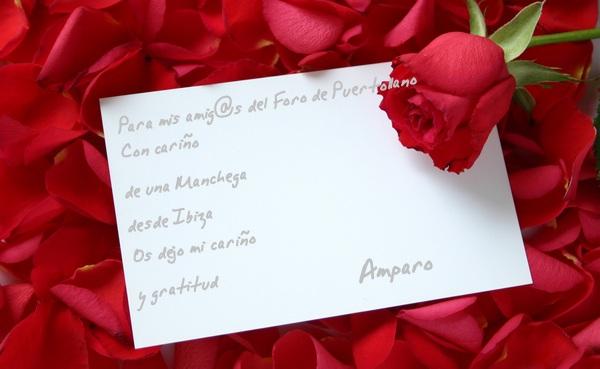 Para mis amig@s del Foro de Puertollano
Con cariño
de una Manchega
desde Ibiza
Os dejo mi cariño
y gratitud
Amparo